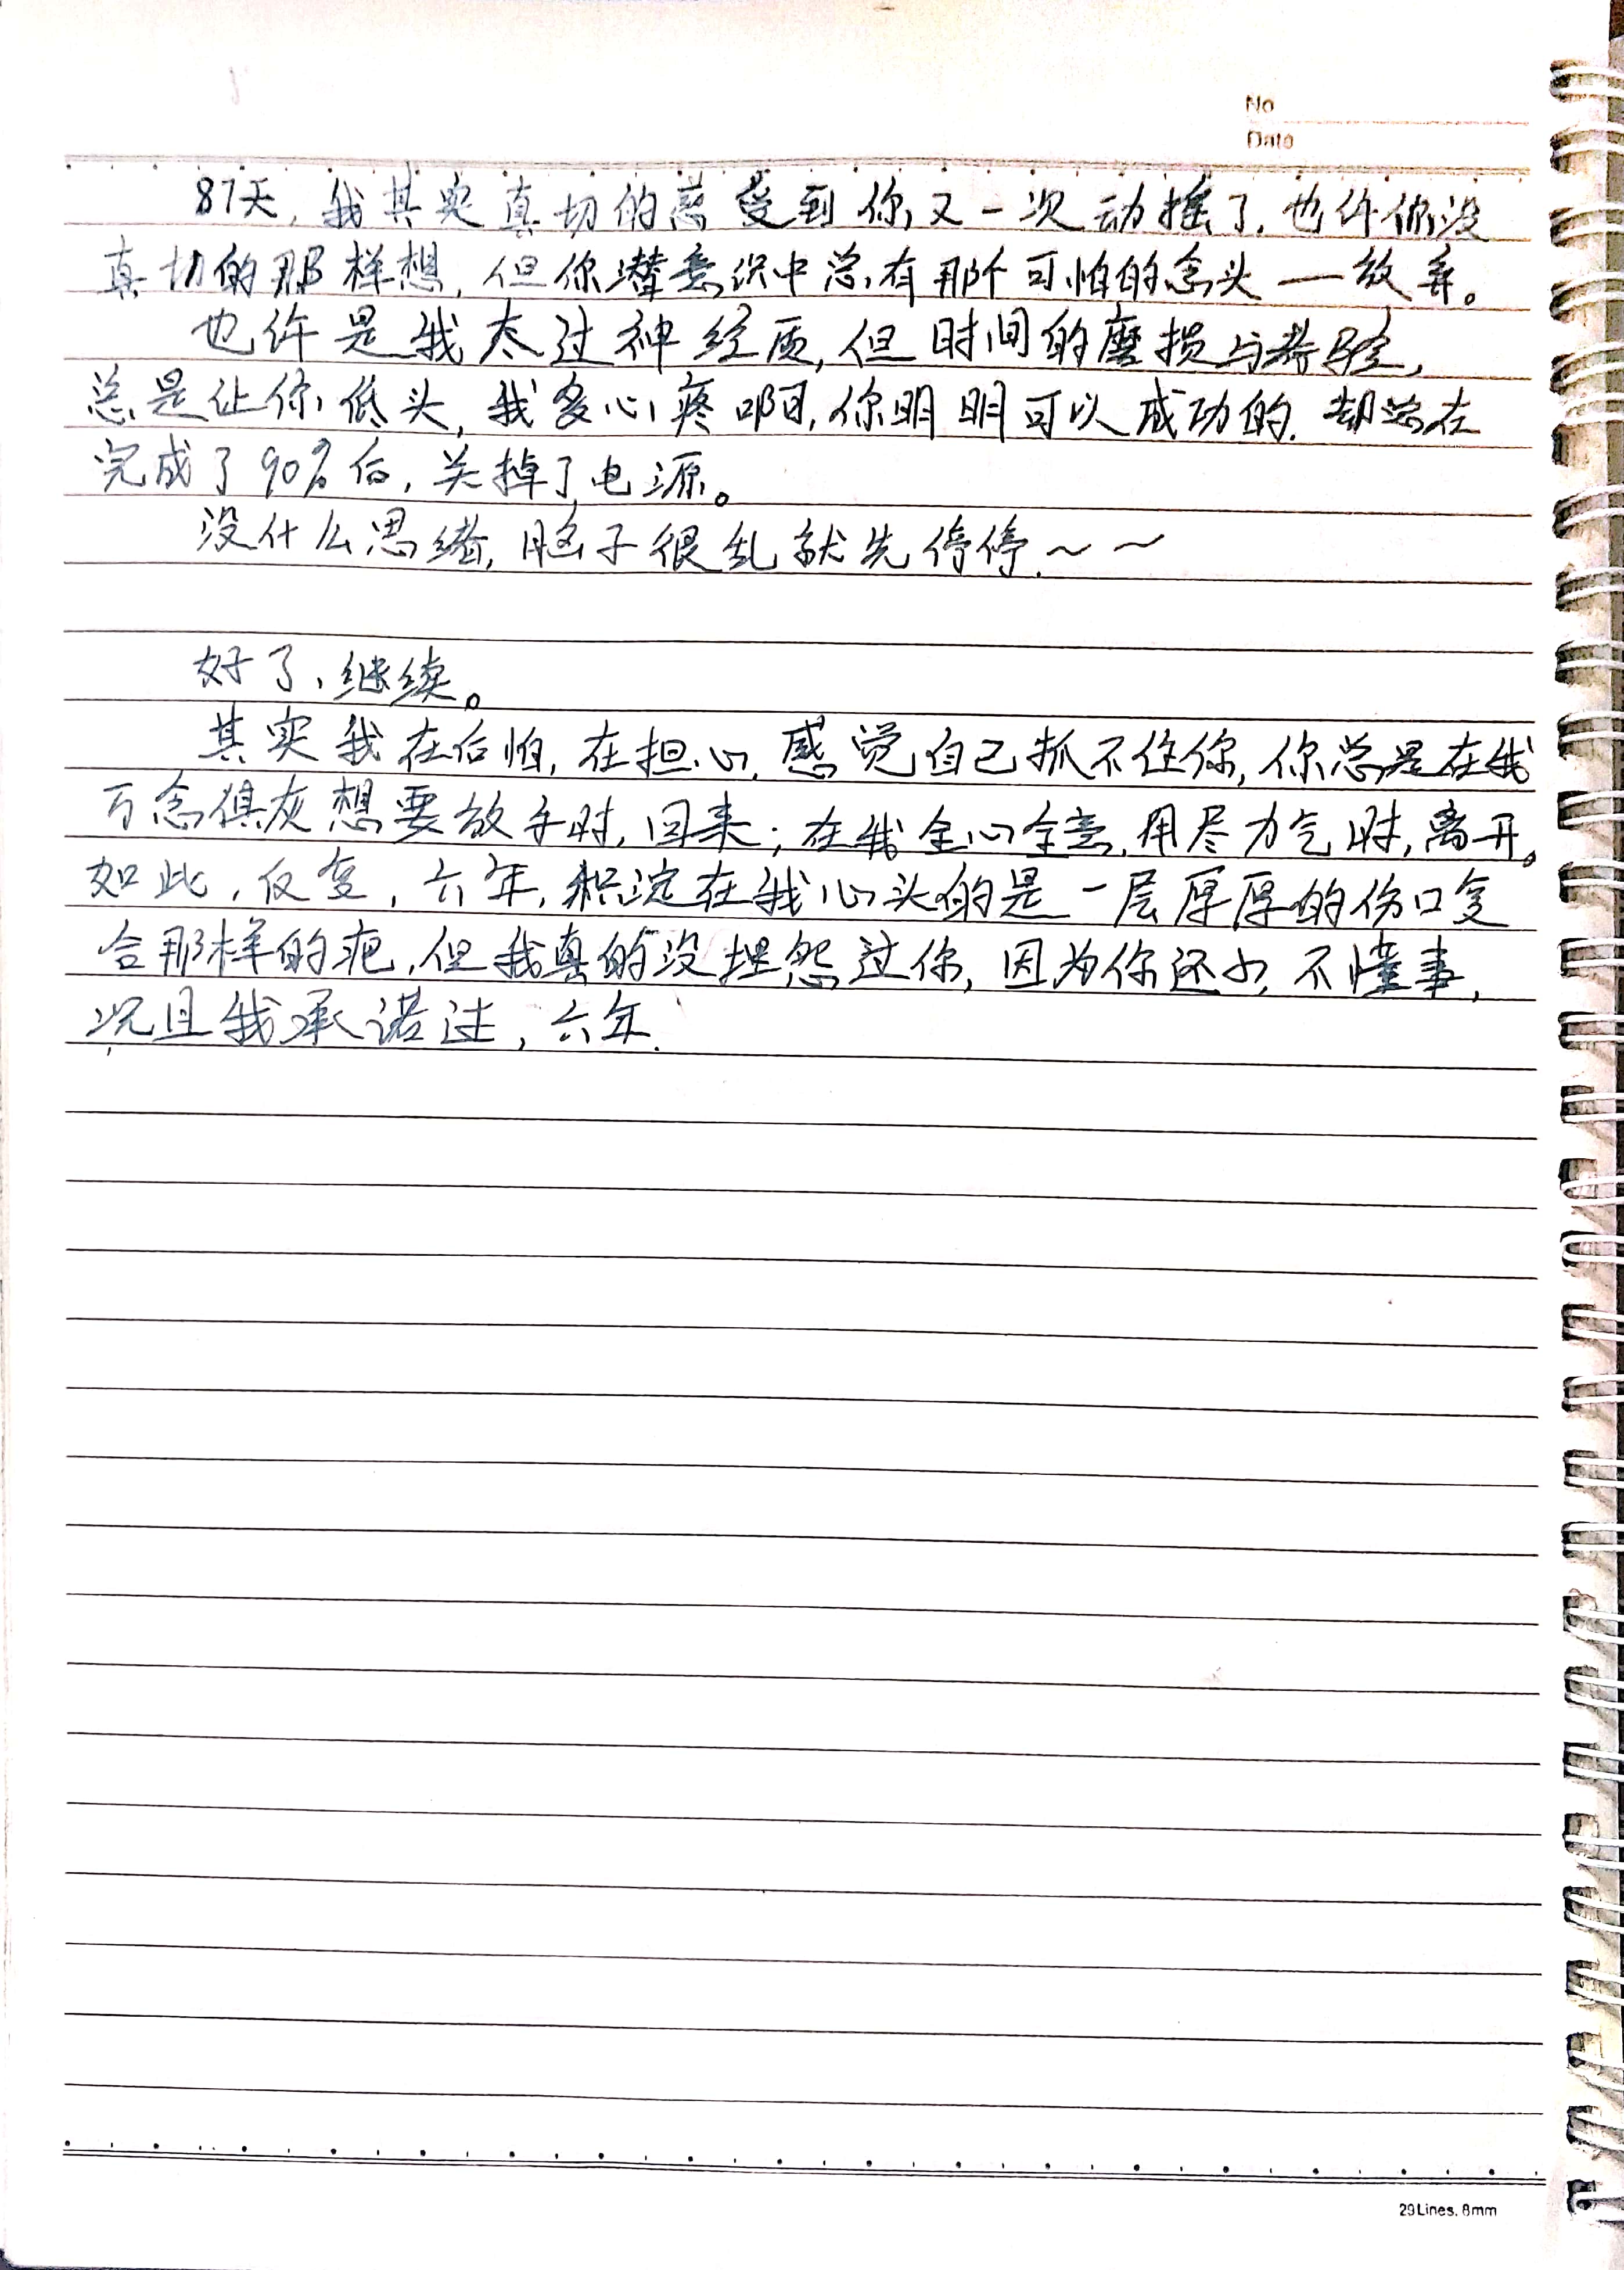 No
Date
87天，我其实真切的感受到你又一次动摇了，也许你没
真切的那样想，但你潜意识中总有那个可怕的念头——放弃。
也许是我太过神经质，但时间的磨损与考验，
总是让你低头，我多心疼啊，你明明可以成功的，却总在
完成了90%后，关掉了电源。
没什么思绪，脑子很乱就先停停.～～
好了，继续。
其实我在后怕，在担心，感觉自己抓不住你，你总是在我
万念俱灰想要放手时，回来；在我全心全意，用尽力气时，离开。
如此，反复，六年，积淀在我心头的是一层厚厚的伤口复
合那样的疤，但我真的没埋怨过你，因为你还小，不懂事，
况且我承诺过，六年.
29Lines. 8mm